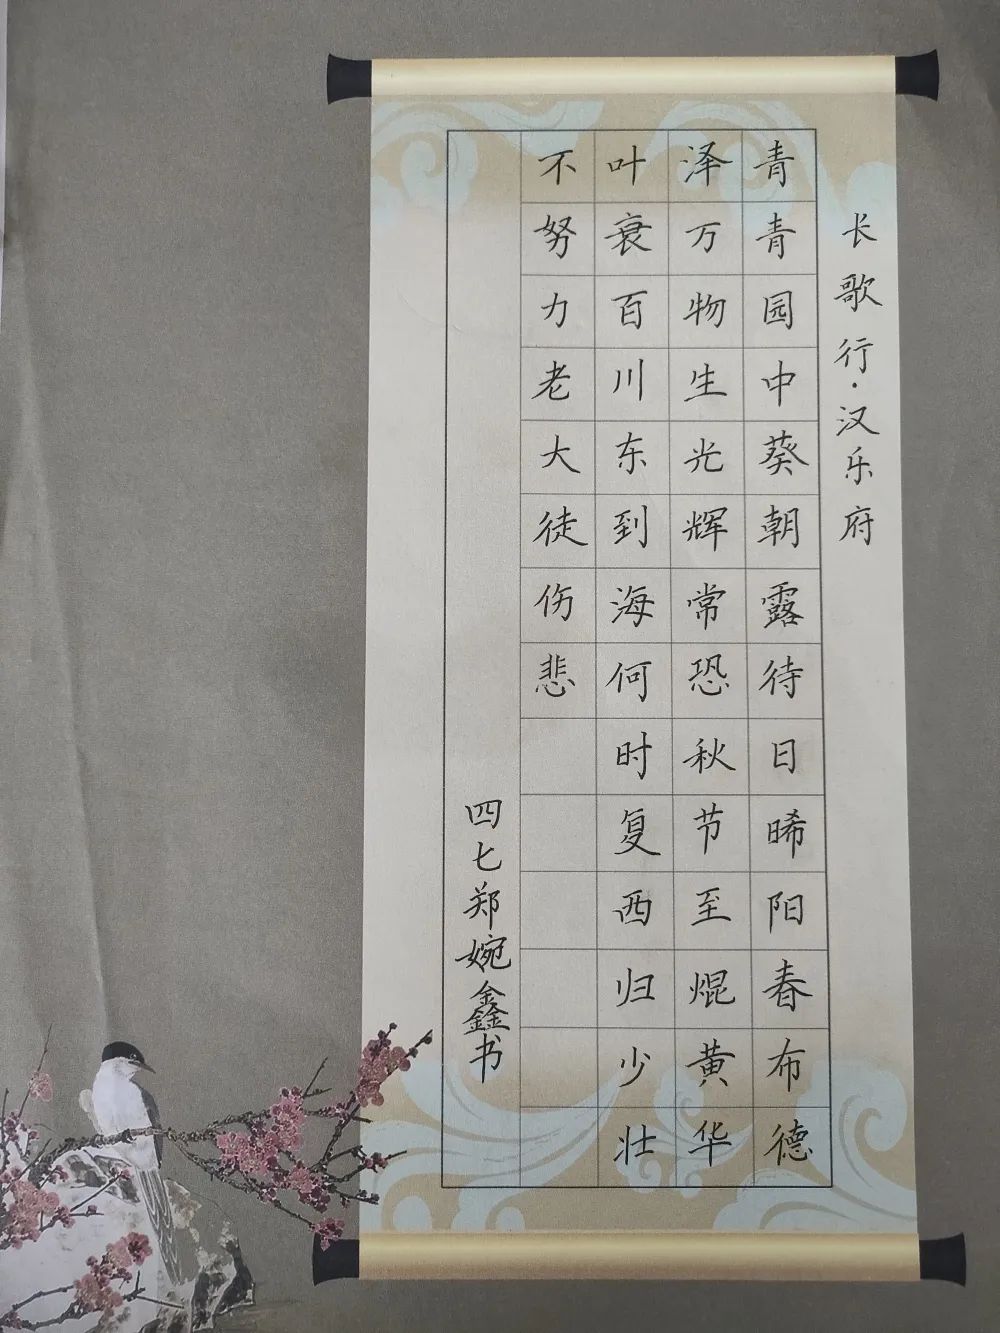 长歌行·汉乐府
青青园中葵朝露待日晞阳春布德
泽万物生光辉常恐秋节至焜黄华
叶衰百川东到海何时复西归少壮
不努力老大徒伤悲
四七郑婉鑫书